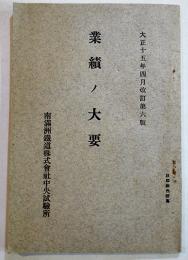 大正十五年四月改訂第六版
業績ノ大要
南滿洲鐵道株式會社中央試驗所